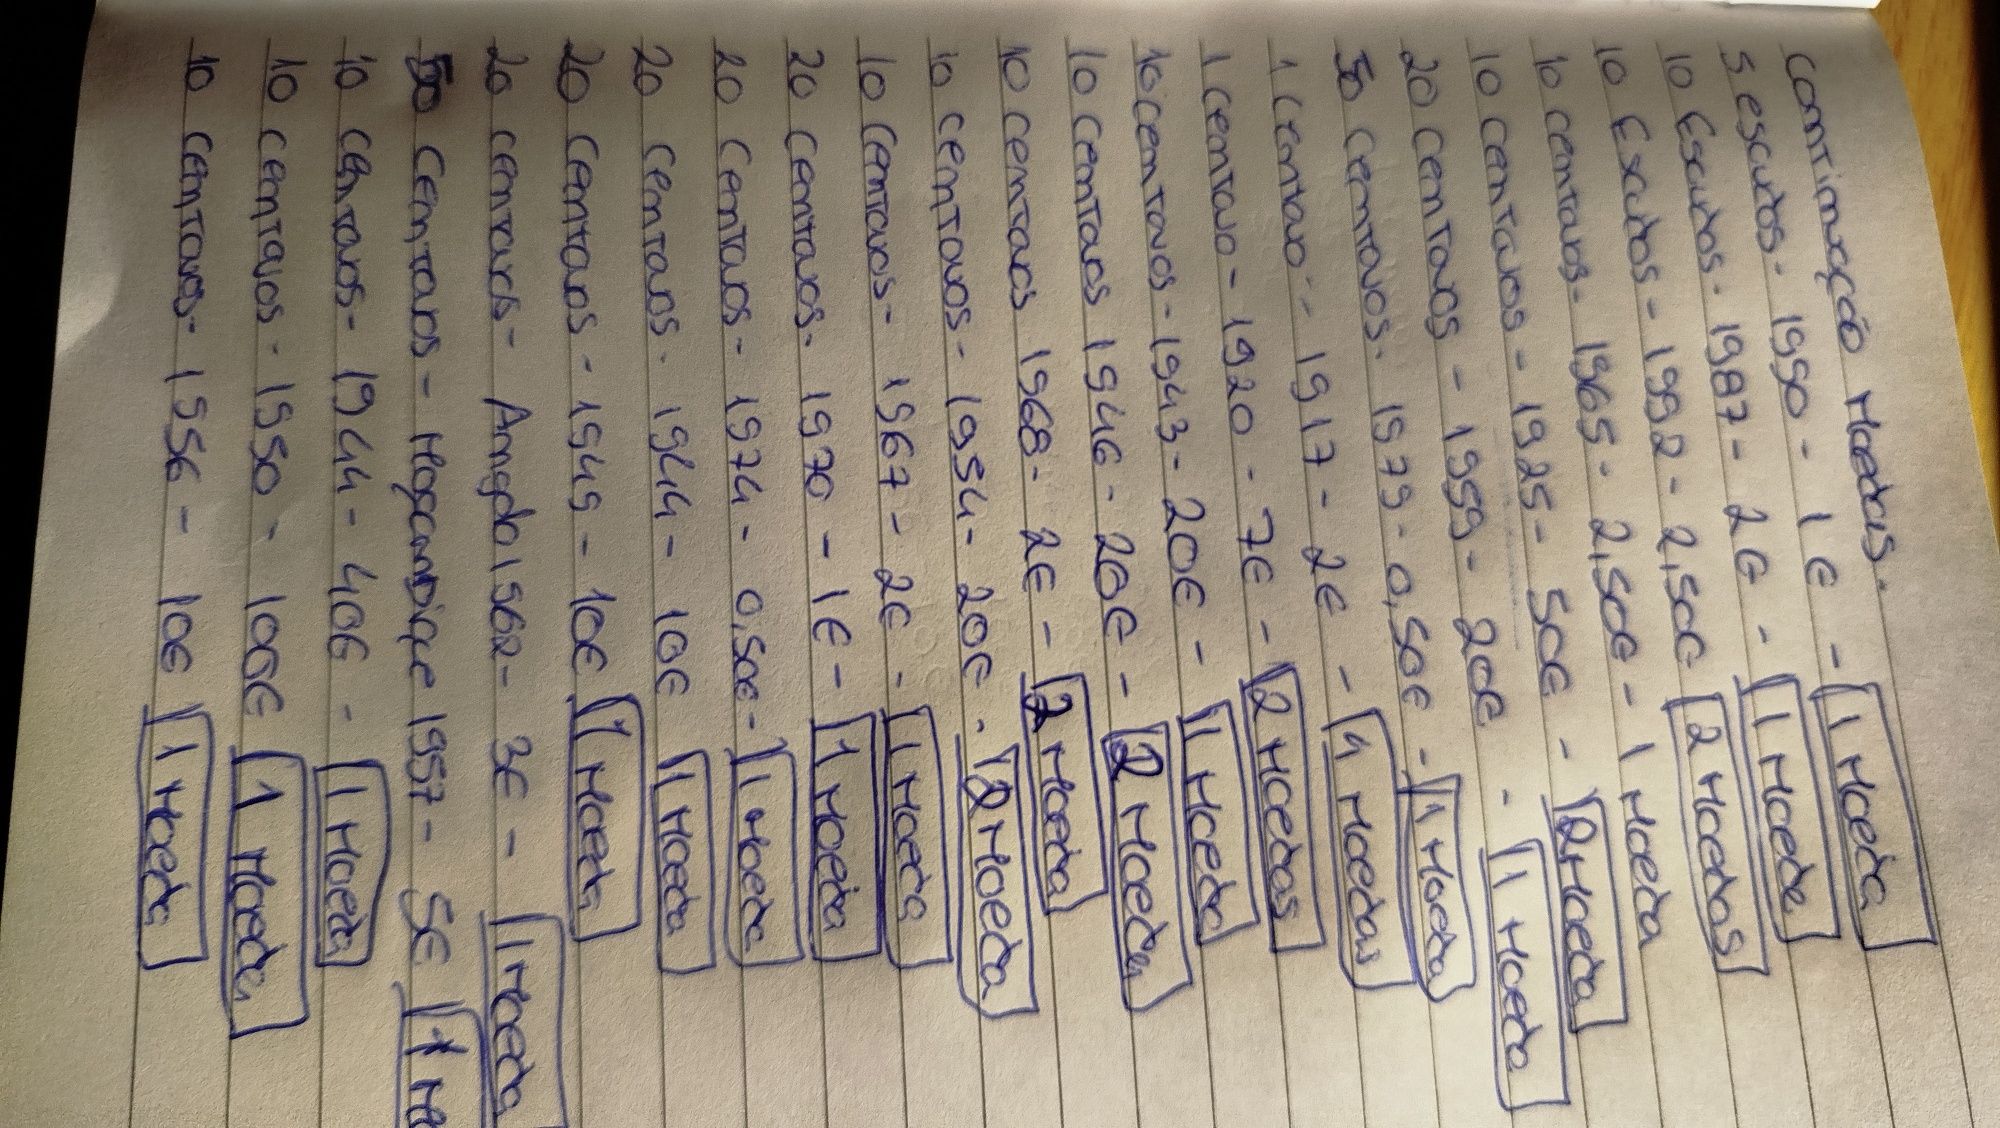 Continuação Moedas.
5 escudos - 1990 - 1€ - 1 Moeda
10 Escudos - 1987 - 2€ - 1 Moeda
10 Escudos - 1992 - 2,50€ 2 Moedas
10 centavos - 1965 - 2,50€ - 1 Moeda
10 centavos - 1925 - 50€ - 2 Moeda
20 centavos - 1959 - 20€ - 1 Moeda
50 centavos - 1979 - 0,50€ - 1 Moeda
1 centavo - 1917 - 2€ - 4 Moedas
1 centavo - 1920 - 7€ - 2 Moedas
10 centavos - 1943 - 20€ - 1 Moeda
10 centavos 1946 - 20€ - 2 Moeda
10 centavos 1968 - 2€ - 2 Moeda
10 centavos - 1954 - 20€ - 2 Moeda
10 centavos - 1967 - 2€ - 1 Moeda
20 centavos - 1970 - 1€ - 1 Moeda
20 centavos - 1974 - 0,50€ - 1 Moeda
20 centavos - 1944 - 10€ 1 Moeda
20 centavos - 1949 - 10€ 1 Moeda
20 centavos - Angola 1962 - 3€ - 1 Moeda
50 centavos - Moçambique 1957 - 5€ 1 Mo
10 centavos - 1944 - 40€ - 1 Moeda
10 centavos - 1950 - 100€ 1 Moeda
10 centavos - 1956 - 10€ 1 Moeda